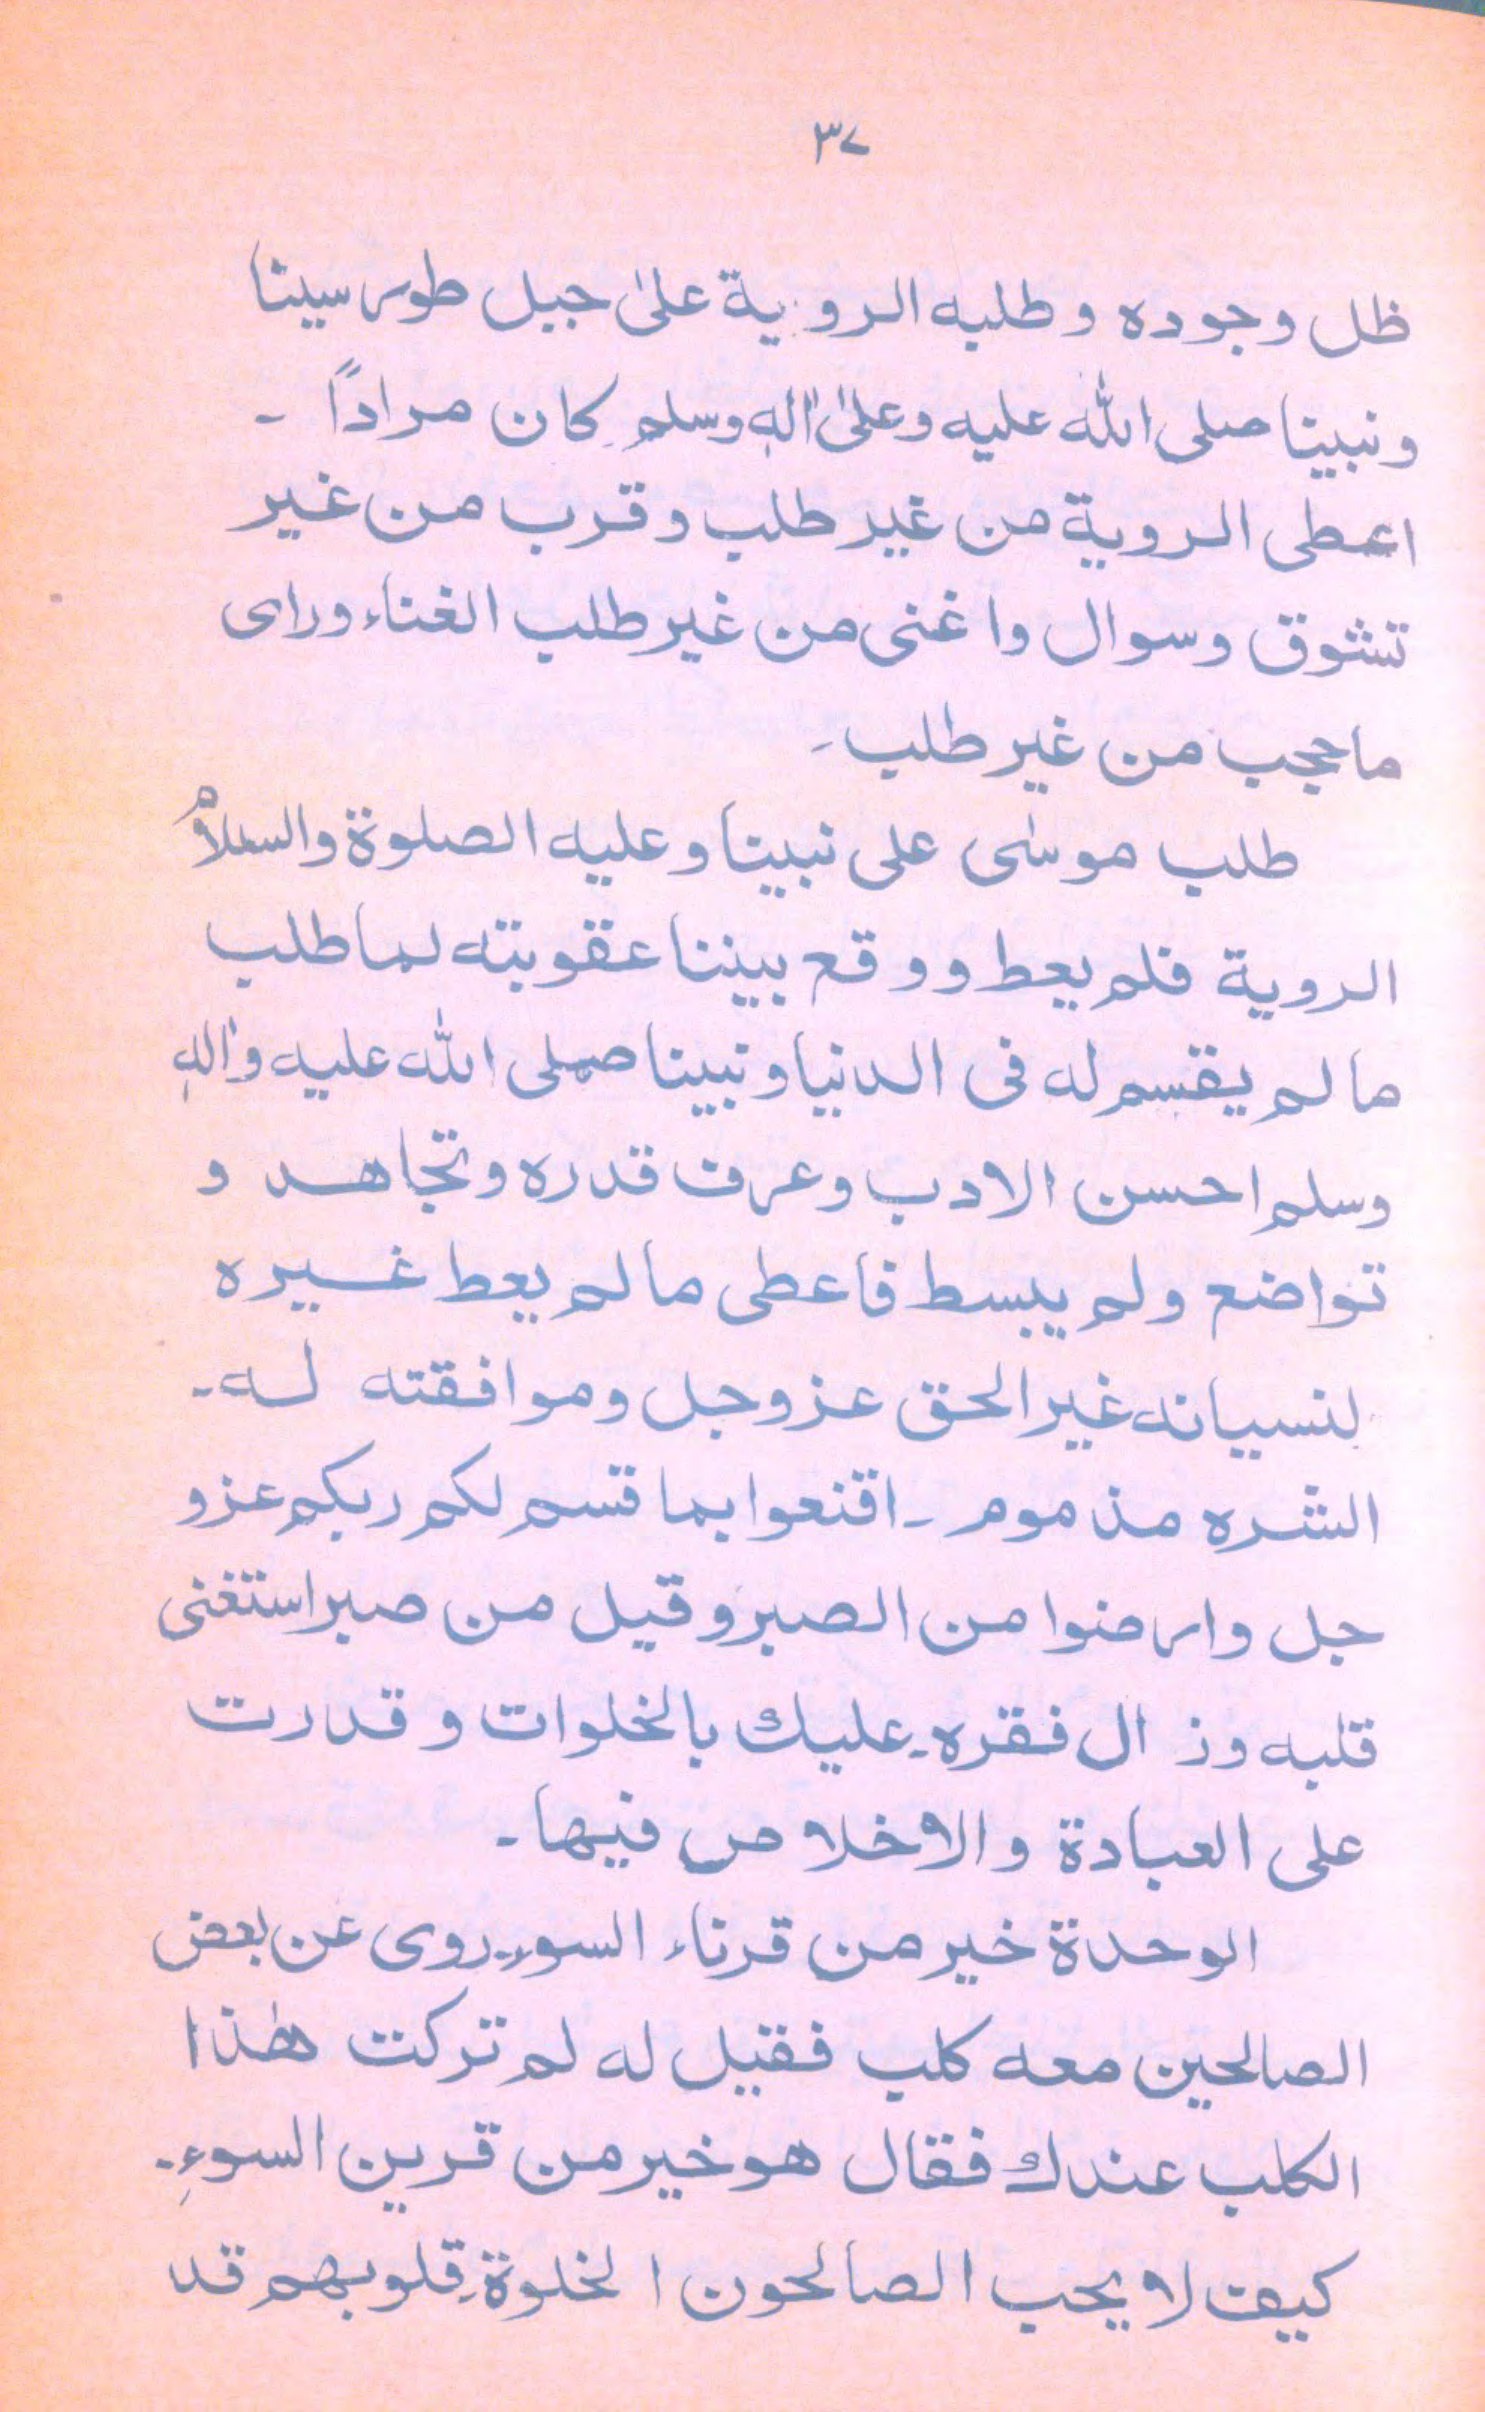 ٣٧
ظل وجوده وطلبه الروية علىٰ جبل طور سينا
ونبينا صلى الله عليه وعلىٰ اٰلهٖ وسلم كان مراداً ۔
اعطى الروية من غير طلب وقرب من غير
تشوق وسوال واغنى من غير طلب الغناء وراى
ما حجب من غير طلب ۔
طلب موسٰى على نبينا وعليه الصلوة والسلام
الروية فلم يعط ووقع بيننا عقوبته لما طلب
ما لم يقسم له فى الدنيا ونبينا صلى الله عليه واٰلهٖ
وسلم احسن الادب وعرف قدره وتجاهد و
تواضع ولم يبسط فاعطى ما لم يعط غيره
لنسيانه غير الحق عز وجل وموافقته له ۔
الشره مذموم ۔ اقنعوا بما قسم لكم ربكم عز و
جل وارضوا من الصبر وقيل من صبر استغنى
قلبه وزال فقره ۔ عليك بالخلوات وقدرت
على العبادة والاخلاص فيها ۔
الوحدة خير من قرناء السوء ۔ روى عن بعض
الصالحين معه كلب فقيل له لم تركت هٰذا
الكلب عندك فقال هو خير من قرين السوءِ ۔
كيف لا يحب الصالحون الخلوة قلوبهم قد